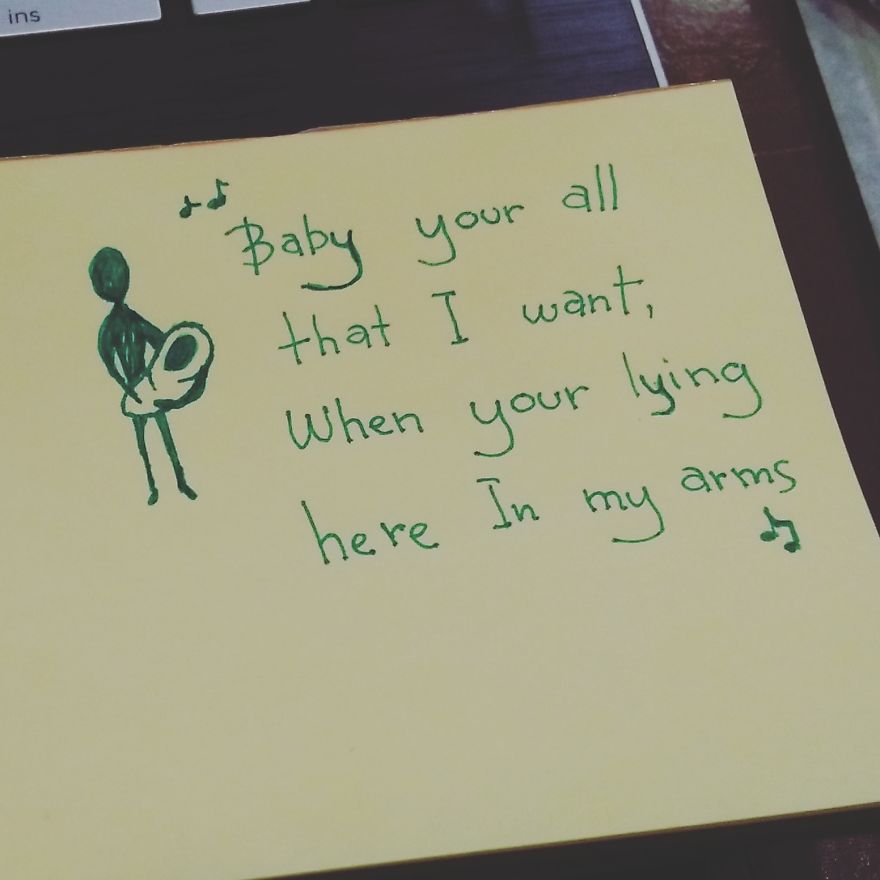 ins
Baby your all
that I want,
When your lying
here In my arms